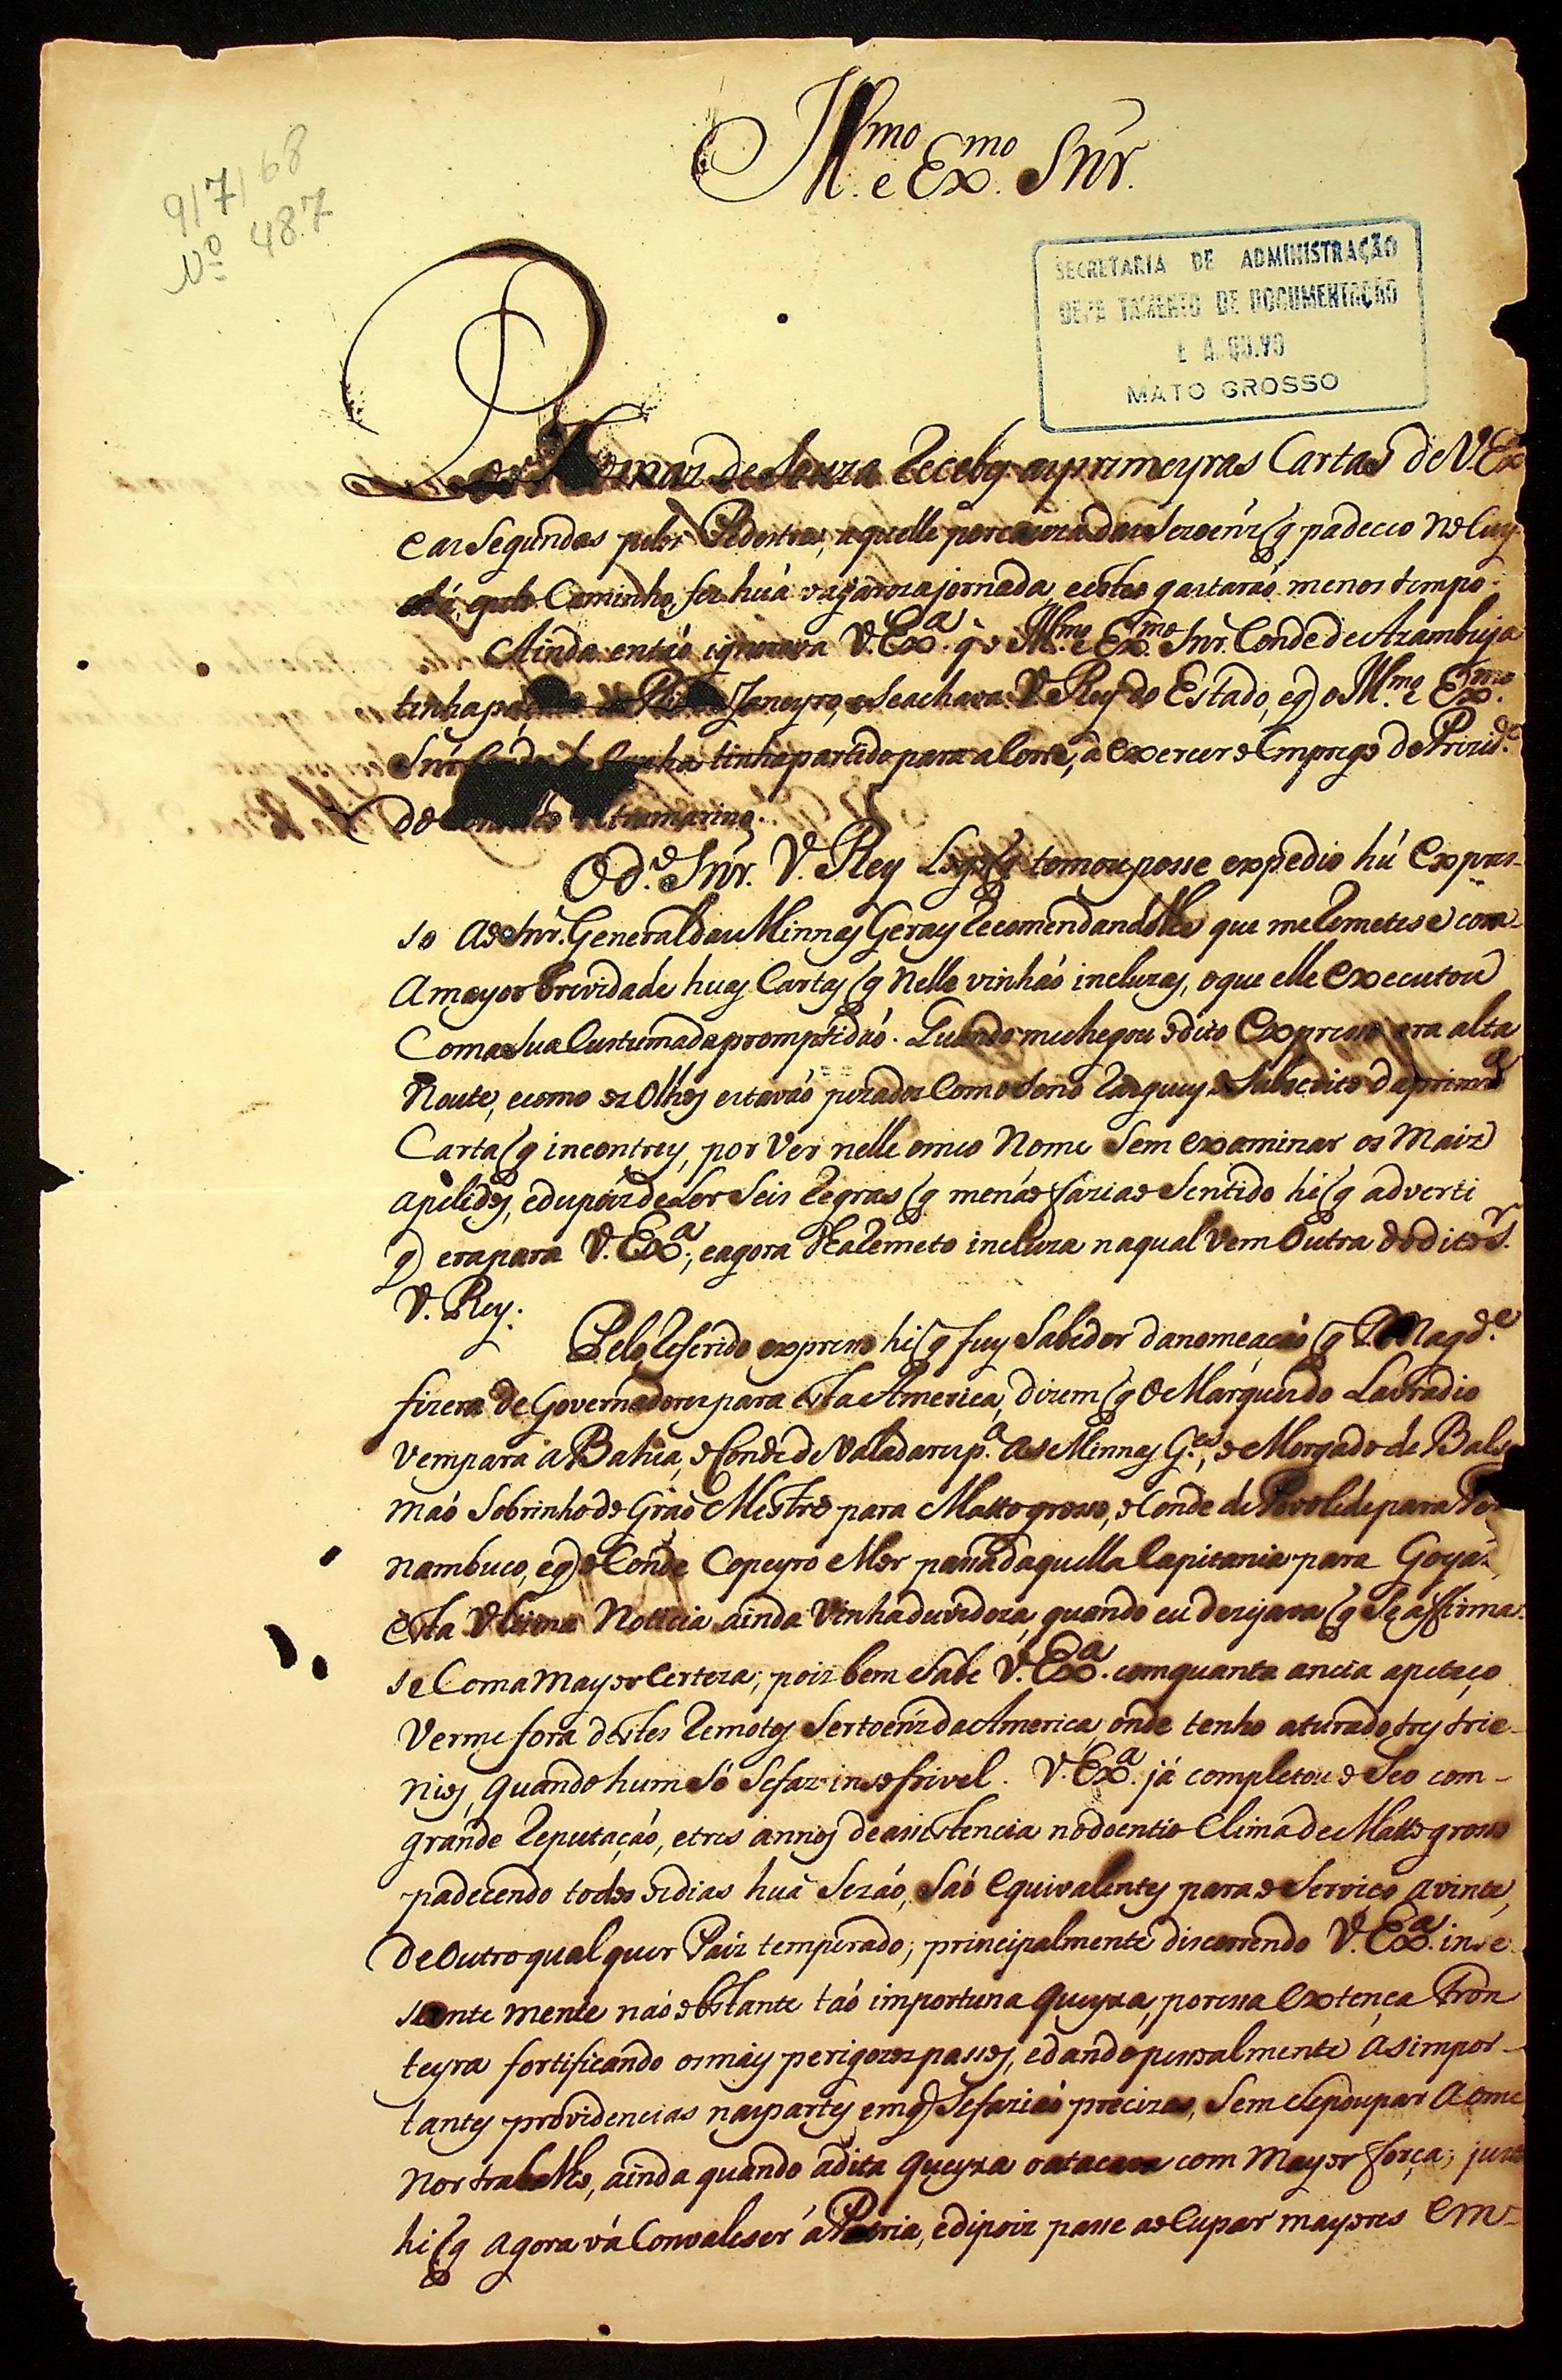 Ill.mo e Ex.mo Snr.
9/7/68
Nº 487
SECRETARIA DE ADMINISTRAÇÃO
DEPARTAMENTO DE DOCUMENTAÇÃO
E
MATO GROSSO
de Souza Receby as primeyras Cartas de V. Ex
e as Segundas pelos Pedestres, aquelle por cauza das Sezoeñz q padeceo no Cuy
abá, e pelo Caminho, fez huã vagaroza jornada, e estes gastaraõ menos tempo.
Ainda entaõ ignorava V. Ex.a q o Ill.mo e Ex.mo Snr. Conde de Azambuja
tinha Janeyro, e Se achava V. Rey do Estado, e q o Ill.mo e Ex.mo
Snr Cunha tinha partido para a Corte, a exercer o Emprego de Prezid.e
do Ultramarino.
O d.o Snr. V. Rey Logo q tomou posse expedio hũ Expres-
so ao Snr. General das Minnas Geraes Recomendandolhe que me Remetese com
a mayor brevidade huas Cartas q nelle vinhaõ incluzas, o que elle executou
Com a Sua Custumada promptidaõ. Quando me chegou o dito Expresso era alta
Noute, e como os Olhos estavaõ pezados Com o Sono Rasguey o Subscrito da primr.a
Carta q incontrey, por Ver nelle o meo Nome Sem examinar os Maiz
apelidos, e depoiz de Ler Seis Regras q me naõ faziaõ Sentido he q adverti
q era para V. Ex.a, e agora lha Remeto incluza na qual Vem Outra do dito S.r
V. Rey.
Pelo Referido expresso he q fuy Sabedor da nomeaçaõ q S. Magd.e
fizera de Governadores para esta America, dizem q o Marquez do Lavradio
vem para a Bahia, o Conde de Valadares p.a as Minnas G.es, o Morgado de Balse
maõ Sobrinho do Graõ Mestre para Matto grosso, o Conde de Povolide para Per
nambuco, e q o Conde Copeyro Mor passa daquella Capitania para Goyaz,
esta Ultima Noticia ainda Vinha duvidoza, quando eu dezejava q Se affirma-
se Com a Mayor Certeza; poiz bem Sabe V. Ex.a com quanta ancia apeteço
Verme fora destes Remotos Sertoeñz da America, onde tenho aturado tres trie-
nios, quando hum Só Se faz insofrivel. V. Ex.a já completou o Seo com-
grande Reputaçaõ, e tres annos de assistencia no doentio Clima de Matto grosso
padecendo todos os dias huã Sezaõ, Saõ equivalentes para o Serviço a vinte,
de Outro qual quer Paiz temperado; principalmente discorrendo V. Ex.a inse-
sante mente naõ obstante taõ importuna queyxa, por essa extença Fron
teyra fortificando os mais perigozos passos, e dando pessoalmente as impor-
tantes providencias nas partes em q Se faziaõ precizas, Sem Se poupar ao me
nor trabalho, ainda quando a dita queyxa o atacava com Mayor força; justo
he q agora vá Convaleser á Patria, e depoiz passe a oCupar mayores Em-